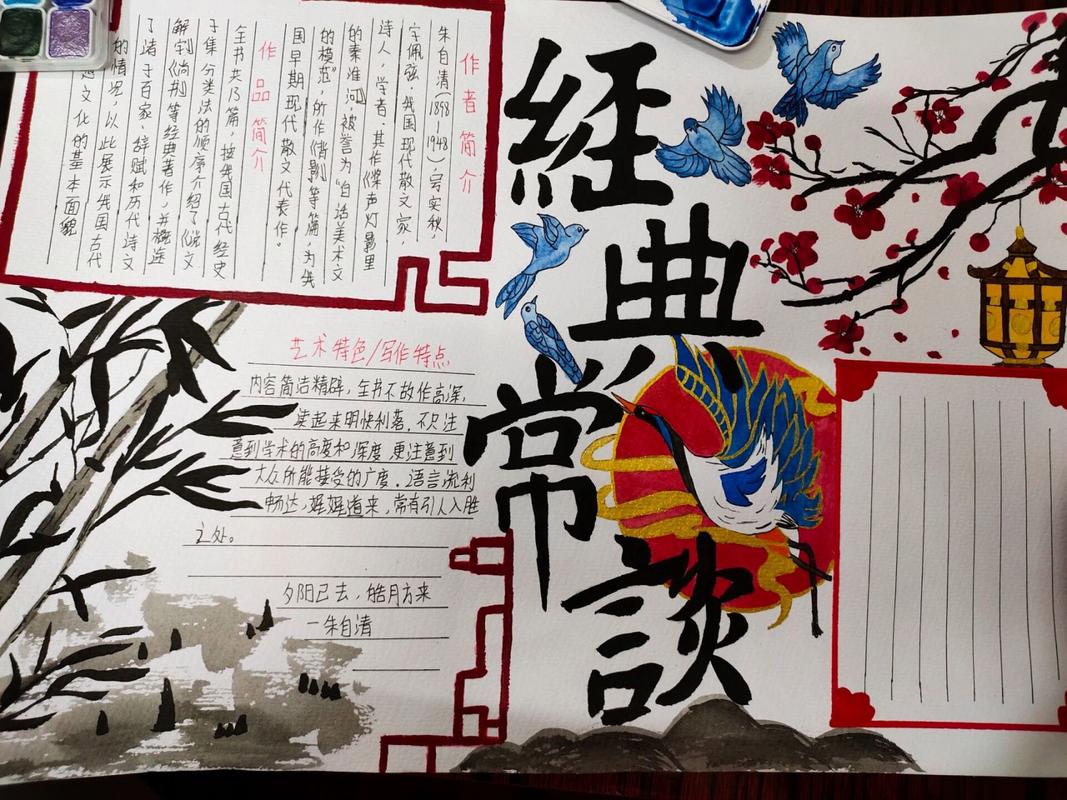 經典常談
作者简介
朱自清(1898—1948)号实秋,
字佩弦.我国现代散文家,
诗人,学者,其作《桨声灯影里
的秦淮河》被誉为"白话美术文
的模范",所作《背影》等篇,为我
国早期现代散文代表作。
作品简介
全书共13篇,按我国古代经史
子集分类法的顺序介绍了《说文
解字》《尚书》等经典著作,并概述
了诸子百家、辞赋和历代诗文
的情况,以此展示我国古代
文化的基本面貌
艺术特色/写作特点
内容简洁精辟,全书不故作高深,
读起来明快利落,不只注
意到学术的高度和深度,更注意到
大众所能接受的广度.语言流利
畅达,娓娓道来,常有引人入胜
之处。
夕阳已去,皓月方来
—朱自清